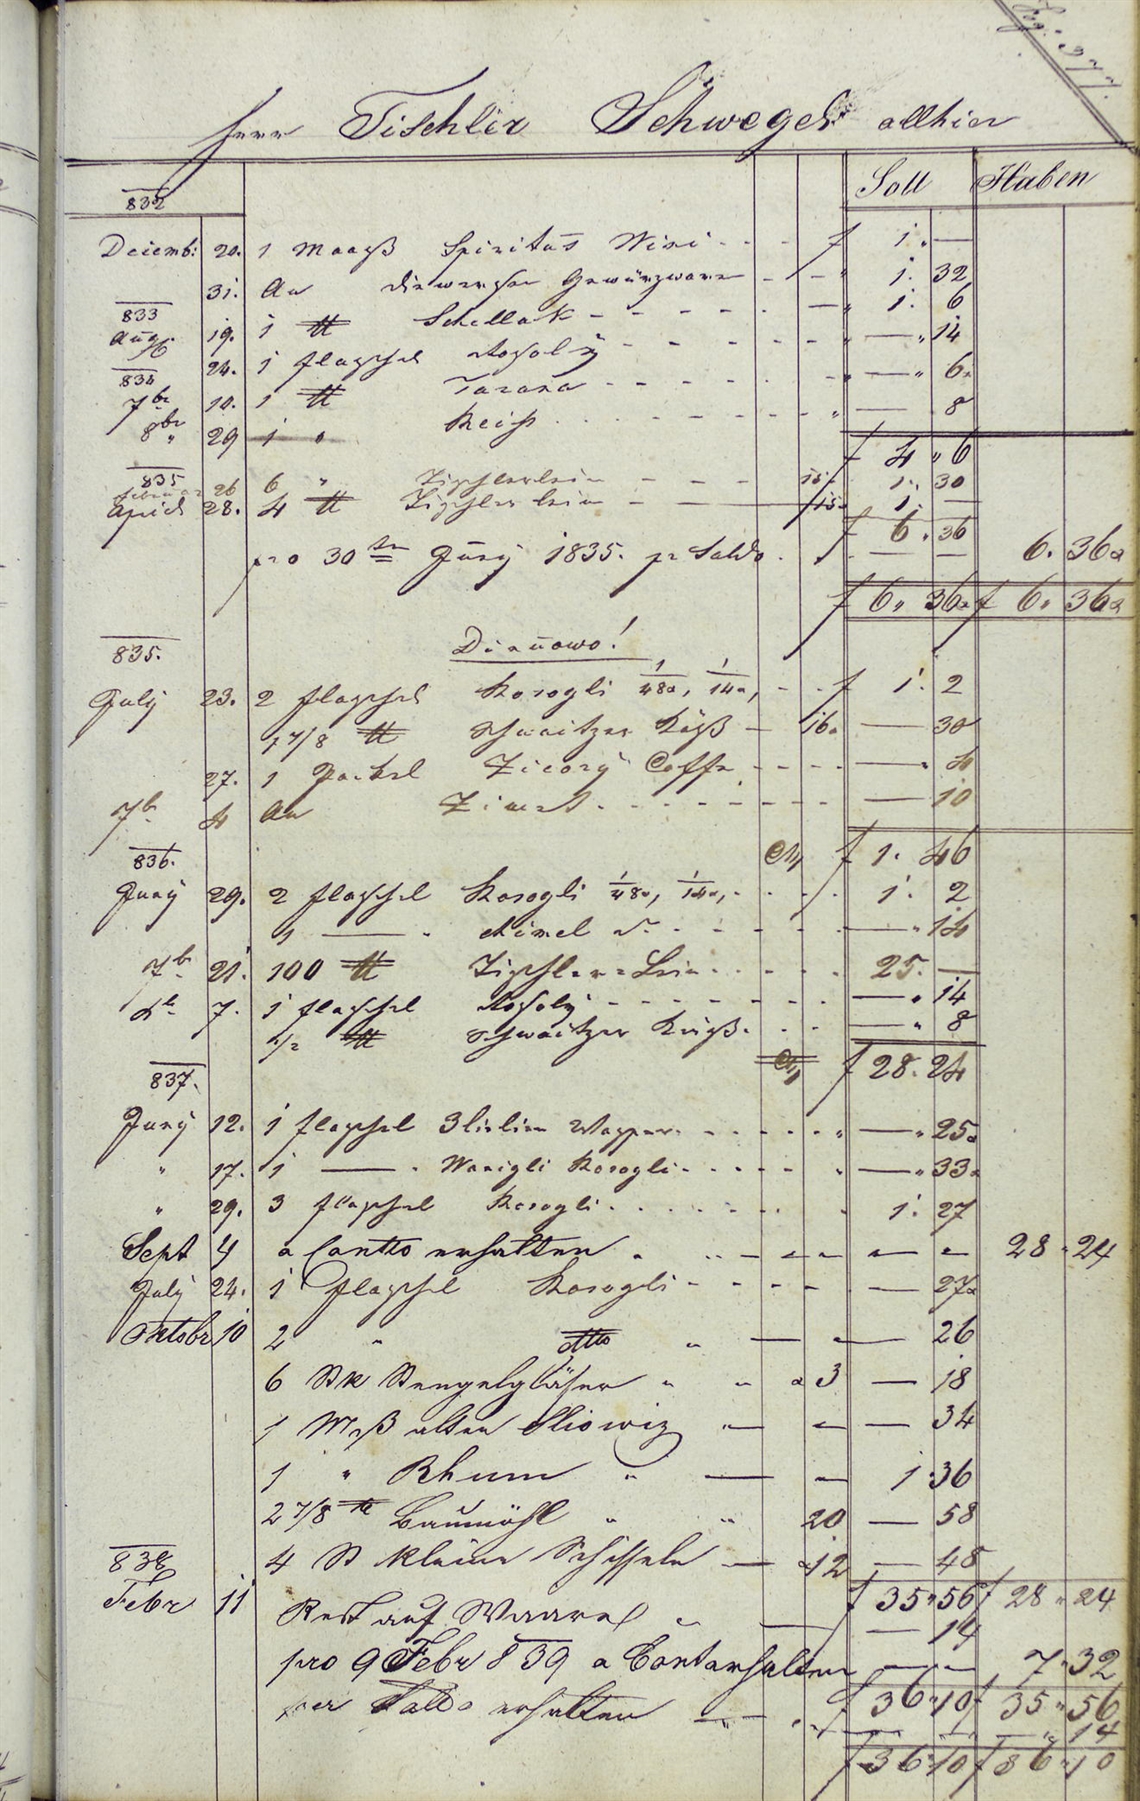 Herr Tischler Schweger allhier
Soll Haben
832
Decemb: 20. 1 Maaß Spiritus Wini - - - f 1 " —
31. An diverser Gewürzware - - " 1. 32
833 — " 1. 6
Aug 19. 1 ℔ Schellak - - - - - " — " 14
24. 1 flaschel Rosoly - - - - - " — " 6
834
7br 10. 1 ℔ - - - - — 8
8br " 29 1 " Reiß
f 4 " 6
835
Februar 26 6 " Tischlerleim - - - 15 1 " 30
April 28. 4 ℔ Tischlerleim - — 15 1. —
f 6 " 36
pro 30ten Juny 1835. pr Saldo . — — 6. 36
f 6 " 36 f 6 " 36
835. Dianowo!
July 23. 2 flaschel Rosogli 1/48, 1/14, - - f 1. 2
1 7/8 ℔ Schweitzer Käß — 16 — 30
27. 1 Packel Zicory Caffe - - - - — " 4
7br 4 An Zimet - - - - - - — 10
f 1. 46
836.
Juny 29. 2 flaschel Rosogli 1/48, 1/14, - - - - 1. 2
1 — " do. - - - - - — " 14
7br 21. 100 ℔ Tischler=Leim - - - - 25. —
7. 1 flaschel Rosoly - - - - - - — " 14
1/2 ℔ Schweitzer Käß. - - — " 8
f 28. 24
837.
Juny 12. 1 flaschel Wasser. - - - - - " — " 25
" 17. 1 — " Rosogli - - - - - " — " 33
" 29. 3 flaschel Rosogli . . . . - - - 1. 27
Sept 4 a Contto erhalten " " - - - — — 28 " 24
July 24. 1 flaschel Rosogli - - - - - — 27
Oktobr 10 2 " dtto " — — 26
6 Stk Stengelgläser " " a 3 — 18
1 Mß alten Sliowiz " — — 34
1 " Rhum " — — 1 " 36
2 7/8 ℔ Baumöhl " " 20 — 58
838 4 St kleine Schisseln — a 12 — 48
f 35 " 56 f 28 " 24
Febr 11 Rest auf Waare " — — 14
pro 9 Febr 839 a Conto erhalten — — 7 " 32
f 36 " 10 f 35 " 56
per Saldo erhalten — " — — " 14
f 36 " 10 f 36 " 10